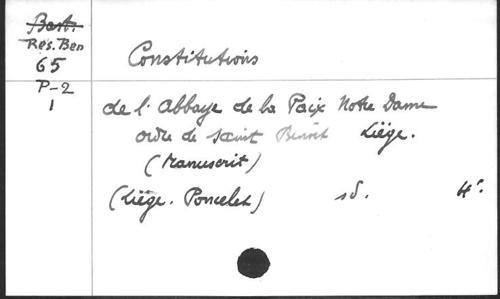 Bast.
Res. Ben
65
P-2
1
Constitutions
de l'Abbaye de la Paix Notre Dame
ordre de saint Benoit Liége.
(Manuscrit)
(Liége. Poncelet) sd. 4°.